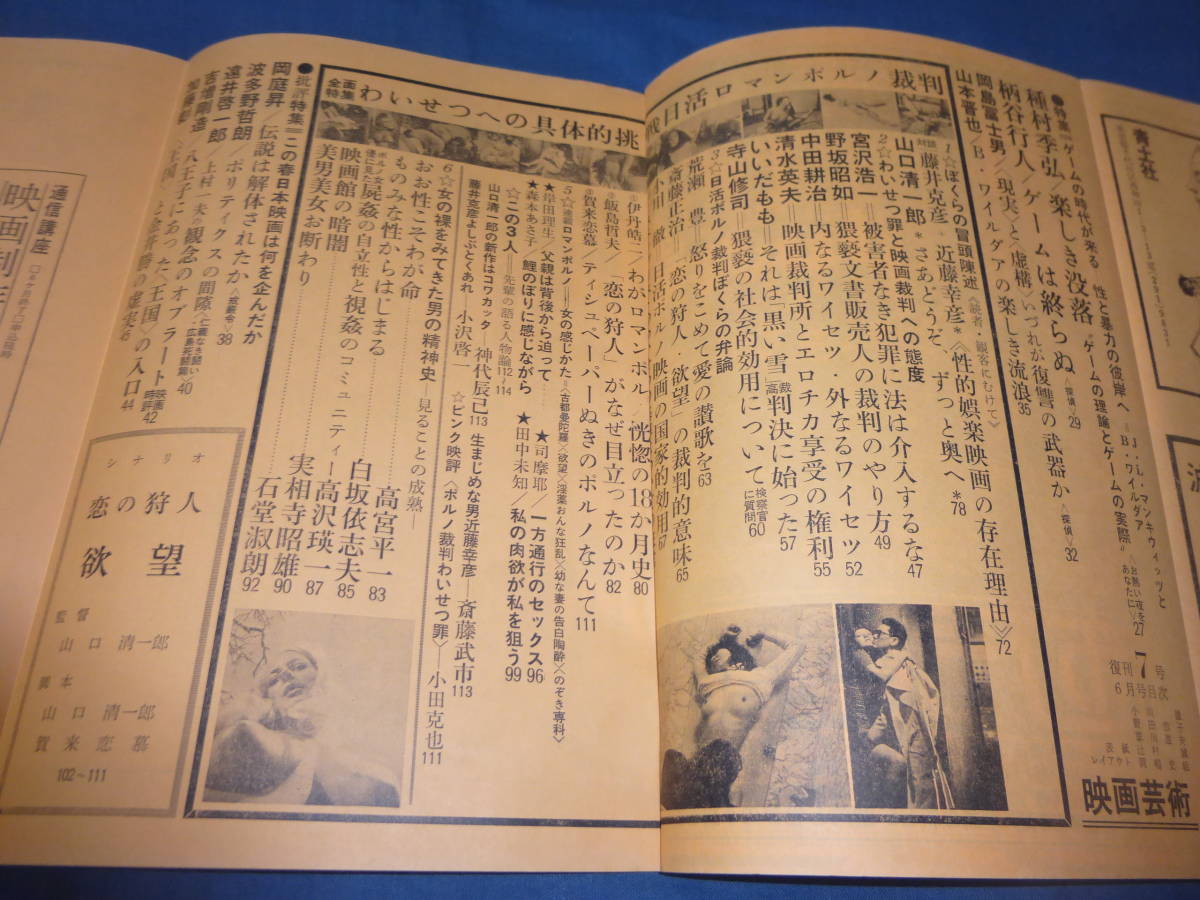 映画芸術
復刊7号
6月号目次
表紙
レイアウト
●特集=ゲームの時代が来る 性と暴力の彼岸へ
種村季弘/楽しき没落
"ゲームの理論とゲームの実際"
柄谷行人/ゲームは終らぬ
〈探偵〉29
岡島富士男/〈現実〉と〈虚構〉いづれが復讐の武器か
〈探偵〉32
山本晋也/B・ワイルダアの楽しき流浪35
青土社
日活ロマンポルノ裁判
1☆ぼくらの冒頭陳述〈読者・観客にむけて〉
対談 藤井克彦*近藤幸彦*《性的娯楽映画の存在理由》72
山口清一郎*さあとうぞ、ずっと奥へ*78
2☆わいせつ罪と映画裁判への態度
宮沢浩一=被害者なき犯罪に法は介入するな47
野坂昭如=猥褻文書販売人の裁判のやり方49
中田耕治=内なるワイセツ・外なるワイセツ52
清水英夫=映画裁判所とエロチカ享受の権利55
いいだもも=それは「黒い雪」高裁判決に始った57
3☆日活ポルノ裁判ぼくらの弁論
寺山修司=猥褻の社会的効用について
検察官に質問60
荒瀬 豊=怒りをこめて愛の讃歌を63
斎藤正治=「恋の狩人・欲望」の裁判的意味65
小川 徹=日活ポルノ映画の国家的効用67
全特画集わいせつへの具体的挑戦
/わがロマンポルノ恍惚の18か月史80
飯島哲夫/「恋の狩人」がなぜ目立ったのか82
賀来恋慕/ティシュペーパーぬきのポルノなんて111
5☆連続ロマンポルノ=女の感じかた=〈古都曼陀羅×欲望×淫薬おんな狂乱×幼な妻の告白陶酔×のぞき専科〉
★岸田理生/父親は背後から迫って
★司摩耶/一方通行のセックス96
★森本あさ子/鯉のぼりに感じながら
★田中未知/私の肉欲が私を狙う99
☆この3人―先輩の語る人物論112~114
山口清一郎の新作はコワカッタ―神代辰己113
生まじめな男近藤幸彦―斎藤武市113
藤井克彦よしぶとくあれ 小沢啓一
☆ピンク映評〈ポルノ裁判わいせつ罪〉―小田克也111
6☆女の裸をみてきた男の精神史―見ることの成熟―
おお性こそわが命―高宮平一83
ものみな性からはじまる 白坂依志夫85
屍姦の自立性と視姦のコミュニティー高沢瑛一87
映画館の暗闇 実相寺昭雄90
美男美女お断わり 石堂淑朗92
●批評特集=この春日本映画は何を企んだか
岡庭昇/伝説は解体されたか
〈戒厳令〉38
波多野哲朗/ポリティクスの間隙
〈仁義なき戦い 広島死闘篇〉40
遠井啓一郎/上村一夫〈観念のオブラート
映画の時評42
吉増剛造/八王子にあった〈王国〉の入口44
シナリオ
恋の狩人
欲望
監督
山口清一郎
脚本
山口清一郎
賀来恋慕
102~111
通信講座